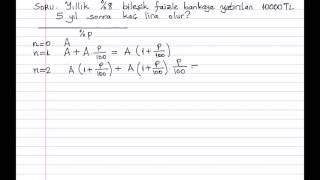 SORU: Yıllık %8 bileşik faizle bankaya yatırılan 10000TL
5 yıl sonra kaç lira olur?
%p
n=0 A
n=1 A + A p/100 = A(1+p/100)
n=2 A(1+p/100) + A(1+p/100) p/100 =